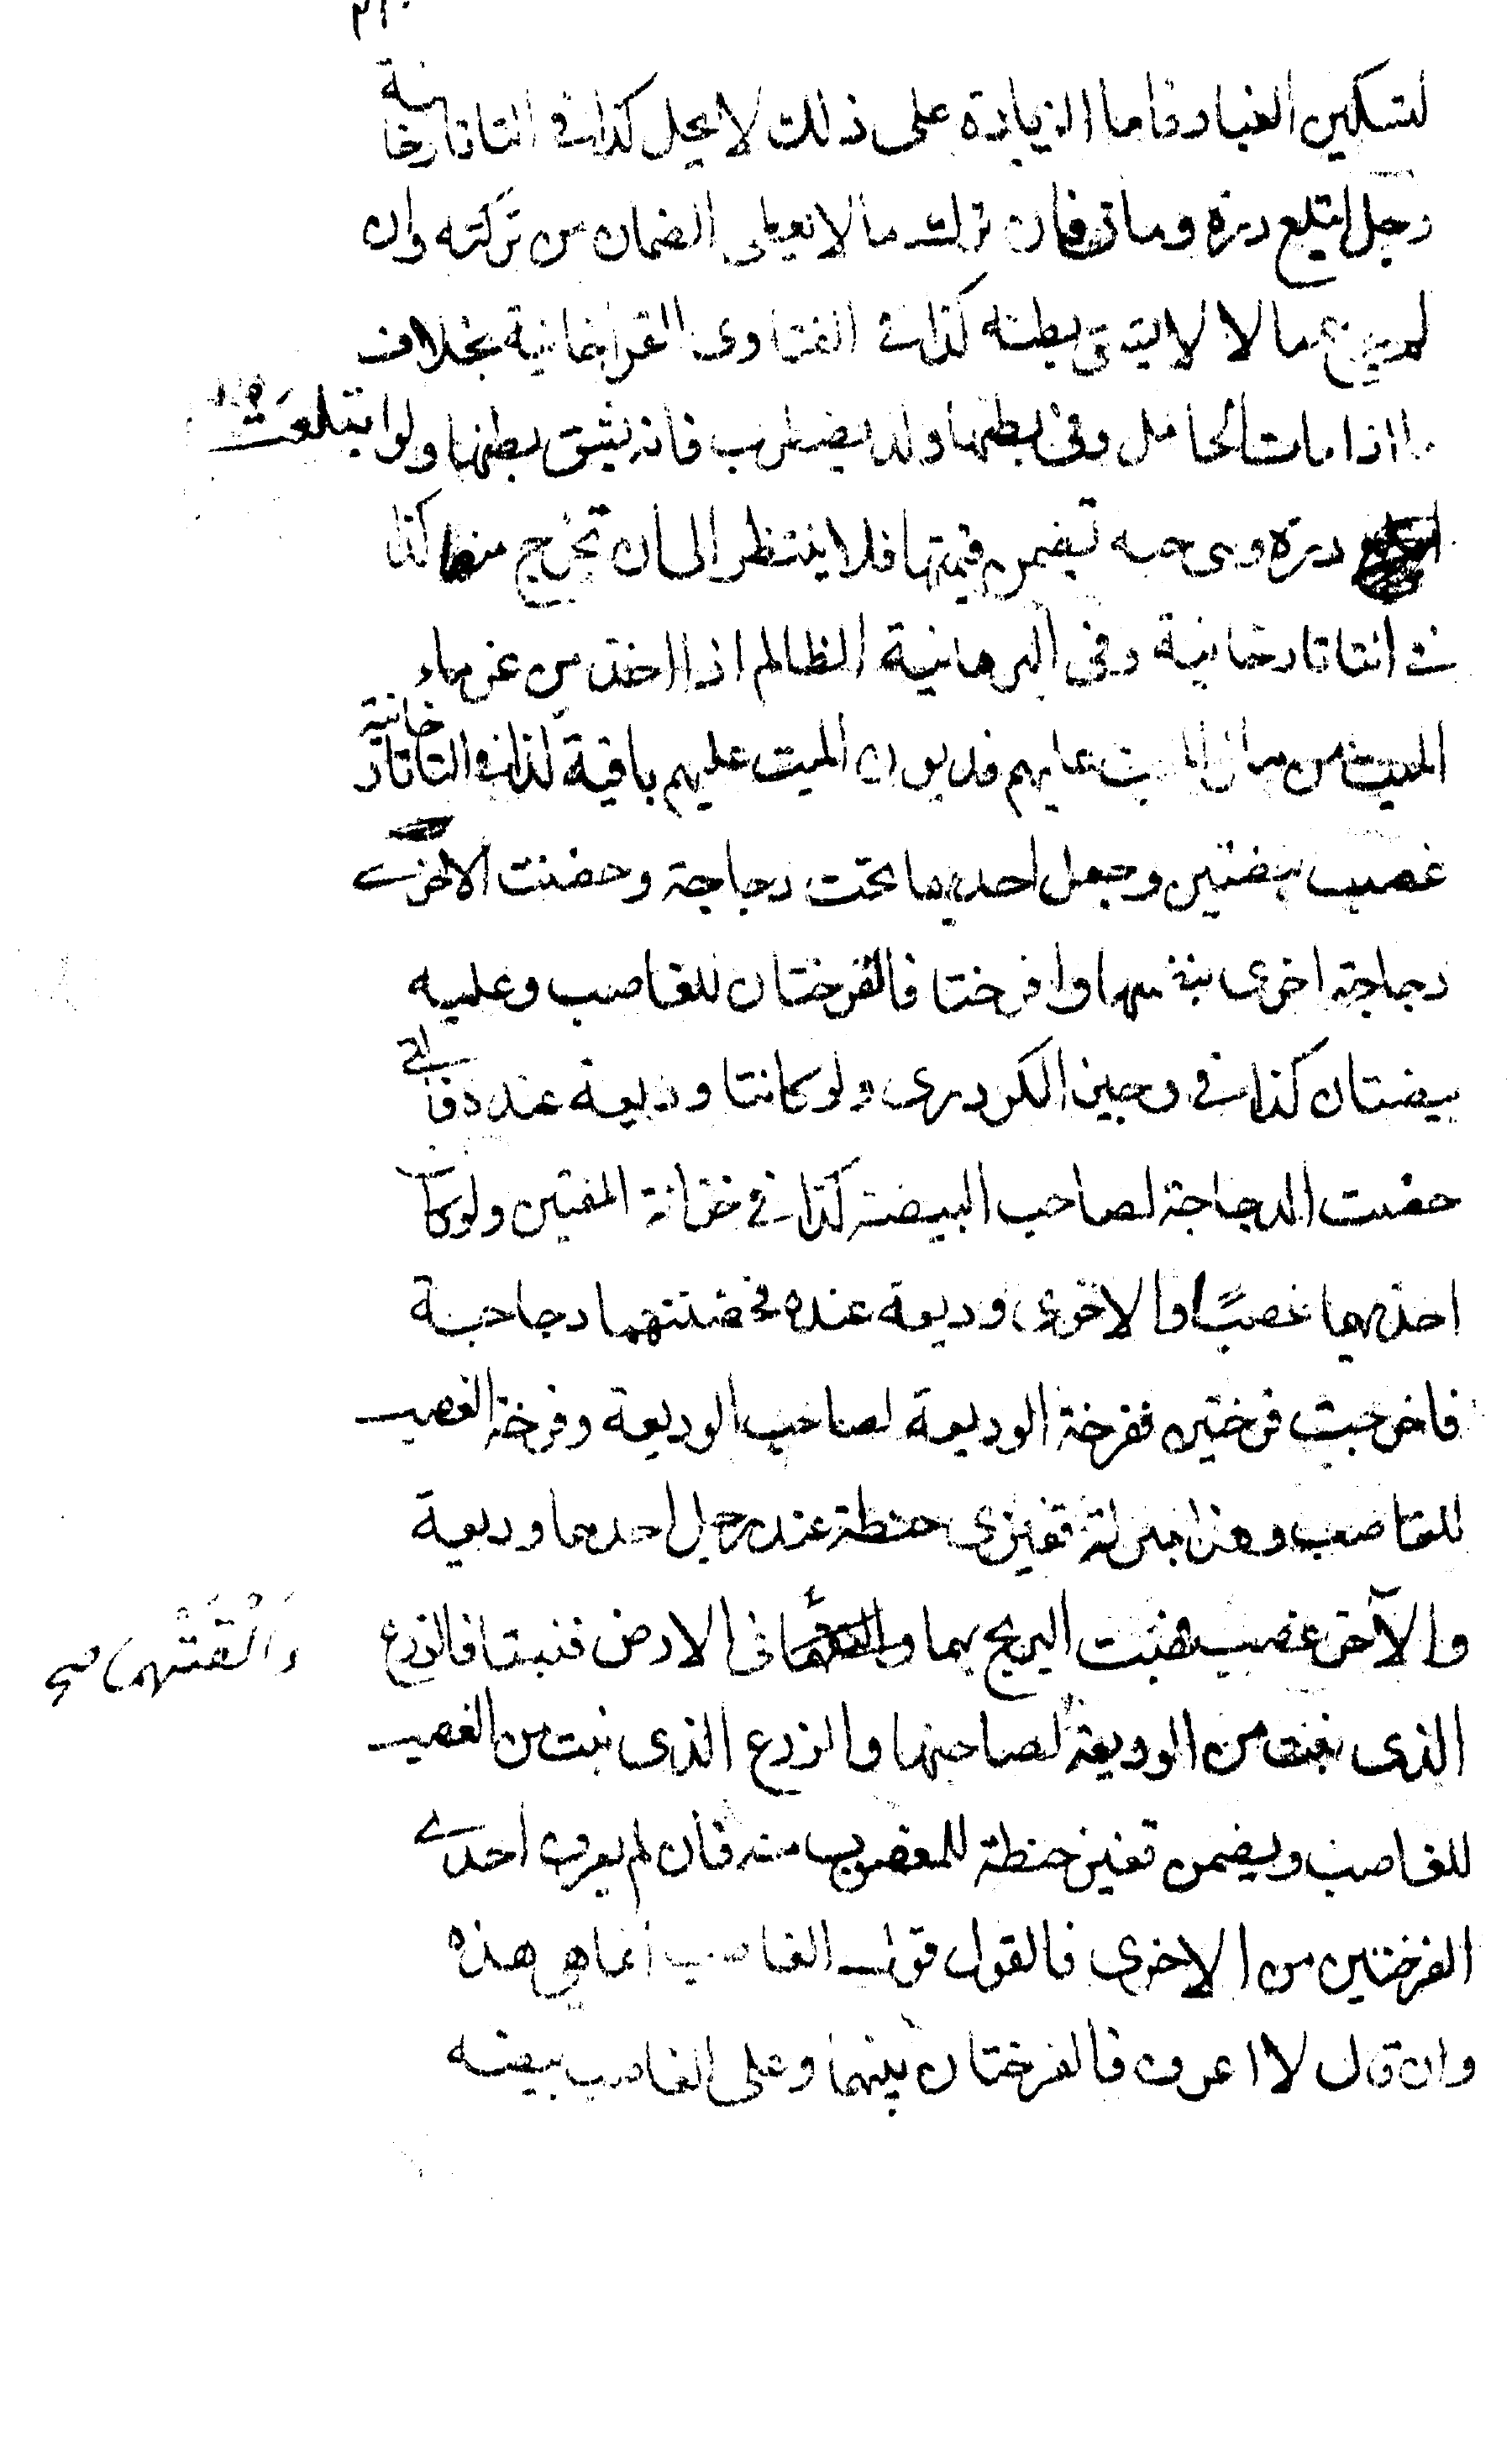 لتسكين الغبار فاما الزيادة على ذلك لا يحل كذا في التاتارخانية
رجل ابتلع درة ومات فان ترك مالا يعطى الضمان من تركته وان
لم يدع مالا لا يشق بطنه كذا في الفتاوى القراخانية بخلاف
ما اذا مات الحامل وفي بطنها ولد يضطرب فانه يشق بطنها ولو ابتلعت
درة وهى حية تضمن قيمتها فلا ينتظر الى ان تخرج منها كذا
في التاتارخانية وفي البرهانية الظالم اذا اخذ من غرماء
الميت من مال الميت عليهم فديون الميت عليهم باقية كذا في التاتارخانية
غصب بيضتين وجعل احديهما تحت دجاجة وحضنت الاخرى
دجاجة اخرى بنفسها وافرختا فالفرختان للغاصب وعليه
بيضتان كذا في وجيز الكردرى ولو كانتا وديعة عنده فالتي
حضنت الدجاجة لصاحب البيضة كذا في خزانة المفتين ولو كان
احديهما غصبًا والاخرى وديعة عنده فحضنتهما دجاجة
فاخرجت فرختين ففرخة الوديعة لصاحب الوديعة وفرخة الغصب
للغاصب وهذا بمنزلة قفيزى حنطة عند رجل احدهما وديعة
والآخر غصب هبت الريح بهما والقتهما في الارض فنبتا فالزرع
وَالْقَتْهما صح
الذى نبت من الوديعة لصاحبها والزرع الذى نبت من الغصب
للغاصب ويضمن قفيز حنطة للمغصوب منه فان لم يعرف احدى
الفرختين من الاخرى فالقول قول الغاصب انما هي هذه
وان قال لا اعرف فالفرختان بينهما وعلى الغاصب بيضه